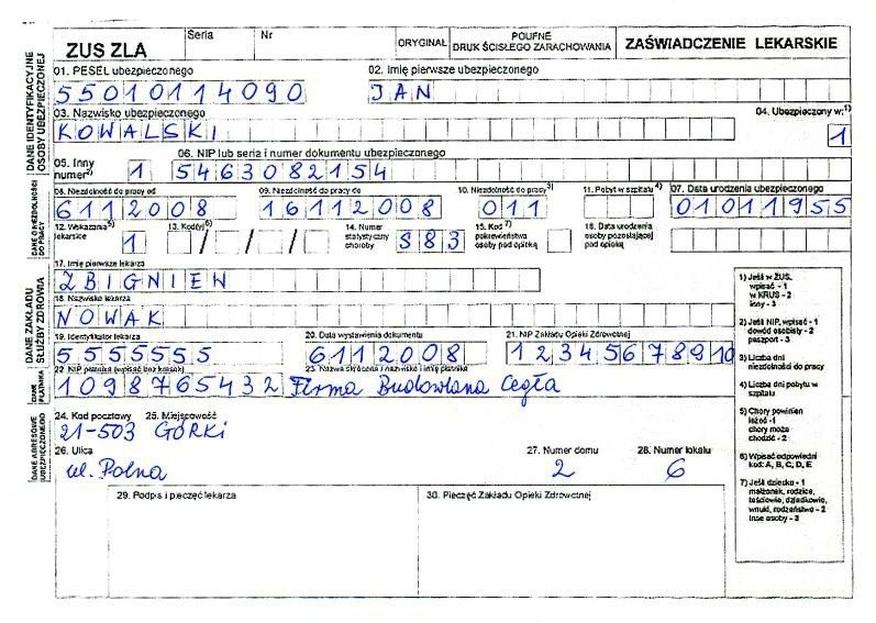 ZUS ZLA Seria Nr ORYGINAŁ POUFNE DRUK ŚCISŁEGO ZARACHOWANIA ZAŚWIADCZENIE LEKARSKIE
DANE IDENTYFIKACYJNE OSOBY UBEZPIECZONEJ
01. PESEL ubezpieczonego 02. Imię pierwsze ubezpieczonego
55010114090 JAN
03. Nazwisko ubezpieczonego 04. Ubezpieczony w:1)
KOWALSKI 1
05. Inny numer2) 1 06. NIP lub seria i numer dokumentu ubezpieczonego
5463082154
DANE O NIEZDOLNOŚCI DO PRACY
08. Niezdolność do pracy od 09. Niezdolność do pracy do 10. Niezdolność do pracy3) 11. Pobyt w szpitalu4) 07. Data urodzenia ubezpieczonego
6112008 16112008 011 01011955
12. Wskazania5) lekarskie 1 13. Kod(y)6) / / / 14. Numer statystyczny choroby S83 15. Kod7) pokrewieństwa osoby pod opieką 16. Data urodzenia osoby pozostającej pod opieką
DANE ZAKŁADU SŁUŻBY ZDROWIA
17. Imię pierwsze lekarza
ZBIGNIEW
18. Nazwisko lekarza
NOWAK
19. Identyfikator lekarza 20. Data wystawienia dokumentu 21. NIP Zakładu Opieki Zdrowotnej
5555555 6112008 12345678910
DANE PŁATNIKA
22 NIP płatnika (wpisać bez kresek) 23. Nazwa skrócona / nazwisko i imię płatnika
1098765432 Firma Budowlana Cegła
DANE ADRESOWE UBEZPIECZONEGO
24. Kod pocztowy 25. Miejscowość
21-503 GÓRKI
26. Ulica 27. Numer domu 28. Numer lokalu
ul. Polna 2 6
29. Podpis i pieczęć lekarza 30. Pieczęć Zakładu Opieki Zdrowotnej
1) Jeśli w ZUS,
wpisać - 1
w KRUS - 2
inny - 3
2) Jeśli NIP, wpisać - 1
dowód osobisty - 2
paszport - 3
3) Liczba dni
niezdolności do pracy
4) Liczba dni pobytu w
szpitalu
5) Chory powinien
leżeć - 1
chory może
chodzić - 2
6) Wpisać odpowiedni
kod: A, B, C, D, E
7) Jeśli dziecko - 1
małżonek, rodzice,
teściowie, dziadkowie,
wnuki, rodzeństwo - 2
inne osoby - 3